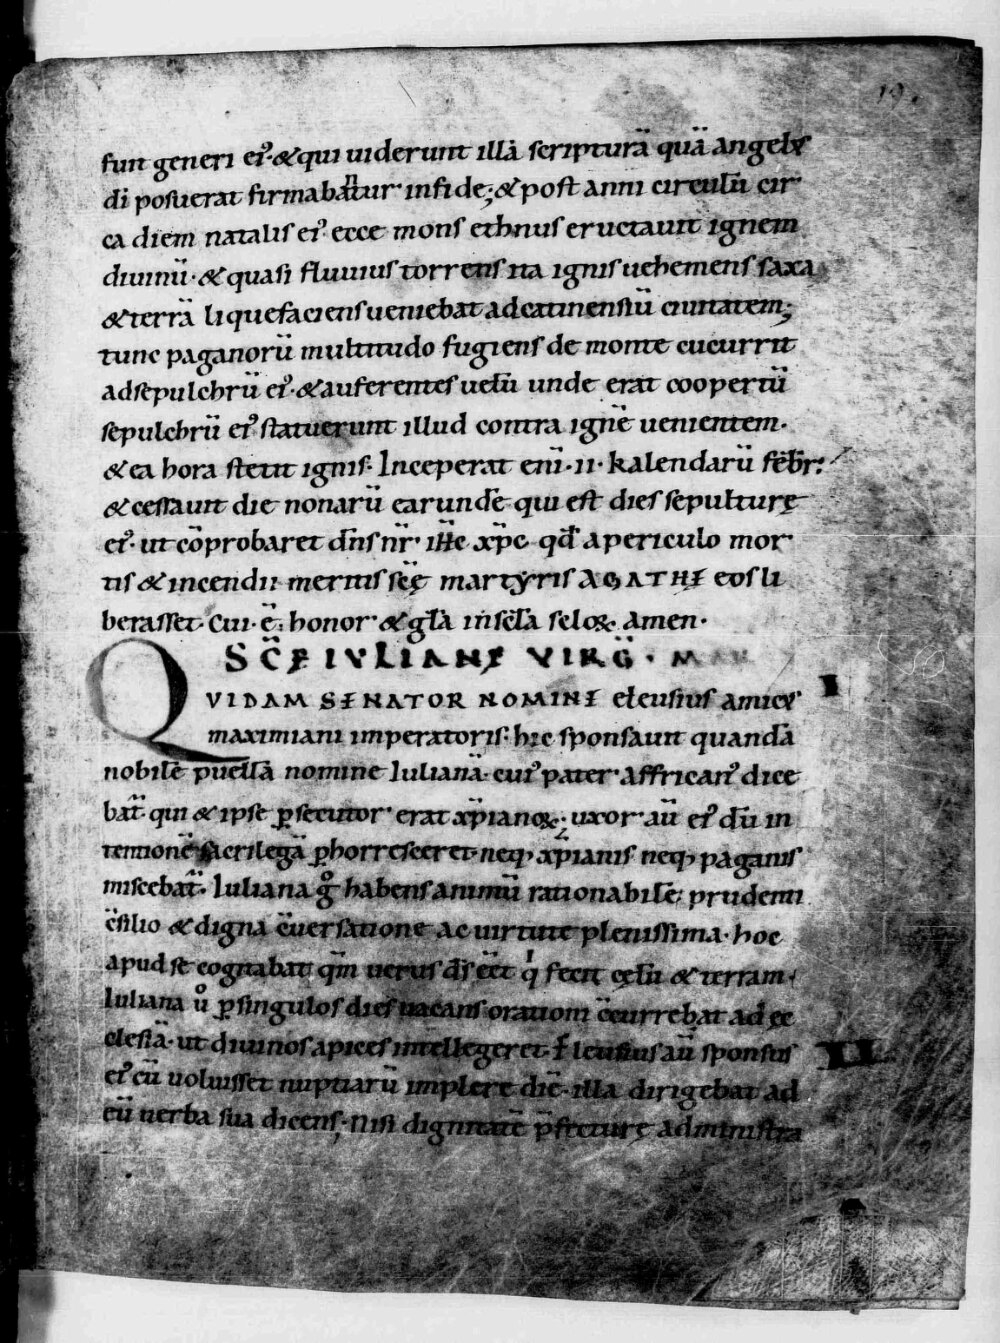 19.
sunt generi ei᾽· & qui uiderunt illā scripturā quā angelus
di posuerat firmabantur in fide; & post anni circulū cir
ca diem natalis ei᾽ ecce mons ethnus eructauit ignem
diuinū· & quasi fluuius torrens ita ignis uehemens saxa
& terrā liquefaciens ueniebat ad catinensiū ciuitatem;
tunc paganorū multitudo fugiens de monte cucurrit
ad sepulchrū ei᾽· & auferentes uelū unde erat coopertū
sepulchrū ei᾽ statuerunt illud contra ignē uenientem·
& ea hora stetit ignis· Inceperat enī· II· kalendarū febr̄·
& cessauit die nonarū earundē qui est dies sepulturę
ei᾽· ut cōprobaret dn̄s nr̄· ih̄c xp̄c qđ a periculo mor
tis & incendii meritis scę̄ martyris AGATHE eos li
berasset· Cui· ē· honor· & gl̄a in sc̄la sclo&· amen·
SC̄E IULIANE VIRḠ· MAR
QUIDAM SENATOR NOMINE eleusius amicus
maximiani imperatoris· hic sponsauit quandā
nobilē puellā nomine Iulianā· cui᾽ pater affrican᾽ dice
bat᷑· qui & ipse ꝑsecutor erat xp̄iano&·; uxor aū ei᾽ dū in
tentionē sacrilegā ꝑhorresceret· neq; xp̄ianis neq; paganis
miscebat᷑· Iuliana gͦ habens animū rationabilē· prudenti
c̄silio & digna c̄uersatione ac uirtute plenissima· hoc
apud se cogitabat qm̄ uerus ds̄ eēt qͥ fecit cęlū & terram·
Iuliana uͦ ꝑ singulos dies uacans orationi c̄currebat ad ec
clesiā· ut diuinos apices intellegeret· Eleusius aū sponsus
ei᾽ cū uoluisset nuptiarū implere diē· illa dirigebat ad
eū uerba sua dicens; Nisi dignitatē p̄fecturę administra
I
II